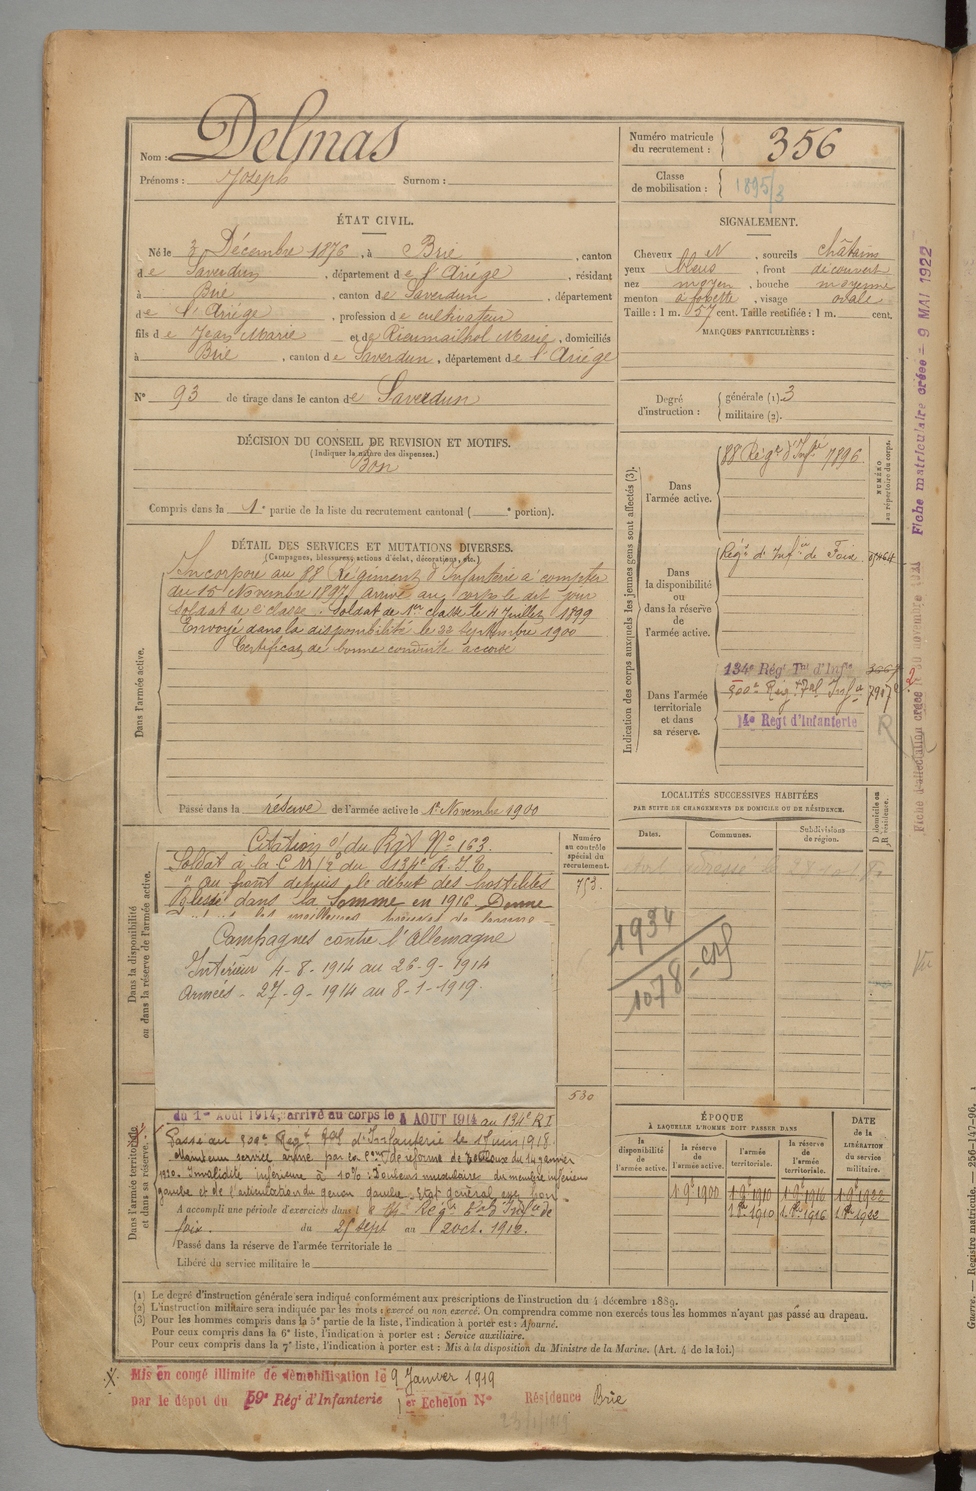 Nom : Delmas
Prénoms : Joseph Surnom :
Numéro matricule du recrutement : 356
Classe de mobilisation : 1895/3
ÉTAT CIVIL.
Né le 3 Décembre 1876, à Brie, canton
de Saverdun, département de l'Ariége, résidant
à Brie, canton de Saverdun, département
de l'Ariége, profession de cultivateur
fils de Jean Marie et de Rieumailhol Marie, domiciliés
à Brie, canton de Saverdun, département de l'Ariége
N° 93 de tirage dans le canton de Saverdun
SIGNALEMENT.
Cheveux N, sourcils châtains
yeux bleus, front découvert
nez moyen, bouche moyenne
menton à fossette, visage ovale
Taille : 1 m. 57 cent. Taille rectifiée : 1 m. cent.
MARQUES PARTICULIÈRES :
Degré d'instruction : générale (1). 3
militaire (2).
DÉCISION DU CONSEIL DE REVISION ET MOTIFS.
(Indiquer la nature des dispenses.)
Bon
Compris dans la 1e partie de la liste du recrutement cantonal ( e portion).
DÉTAIL DES SERVICES ET MUTATIONS DIVERSES.
(Campagnes, blessures, actions d'éclat, décorations, etc.)
Dans l'armée active.
Incorporé au 88 Régiment d'Infanterie à compter
du 15 Novembre 1897, arrivé au corps le dit jour
Soldat de 2e classe. Soldat de 1ère classe le 4 Juillet 1899
Envoyé dans la disponibilité le 22 Septembre 1900
Certificat de bonne conduite accordé
Passé dans la réserve de l'armée active le 1er Novembre 1900
Indication des corps auxquels les jeunes gens sont affectés (3).
NUMÉRO au répertoire du corps.
Dans l'armée active.
88 Régt d'Infie 7896
Dans la disponibilité ou dans la réserve de l'armée active.
Régt d'Infie de Foix
Dans l'armée territoriale et dans sa réserve.
134e Régt Tal d'Infie
500e Rég. Tal Infie
14e Regt d'Infanterie
R
LOCALITÉS SUCCESSIVES HABITÉES
PAR SUITE DE CHANGEMENTS DE DOMICILE OU DE RÉSIDENCE.
Dates. Communes. Subdivisions de région. D domicile ou R résidence.
1934
1078
Dans la disponibilité ou dans la réserve de l'armée active.
Numéro au contrôle spécial du recrutement.
753
Citation O/ du Rgt N° 163.
Soldat à la C M/2 du 134e R.I.T.
" au front depuis le début des hostilités
Blessé dans la Somme en 1916 Donne
Campagnes contre l'Allemagne
Intérieur 4-8-1914 au 26-9-1914
Armées - 27-9-1914 au 8-1-1919.
530
Dans l'armée territoriale et dans sa réserve.
du 1er Août 1914, arrivé au corps le 4 AOUT 1914 au 134e RI
Passé au 500e Regt Tal d'Infanterie le 1 Juin 1918.
Maintenu service armé par la Con de réforme de Toulouse du 14 janvier
1920. Invalidité inférieure à 10% : Douleurs musculaire du membre inférieur
gauche et de l'articulation du genou gauche. Etat général
A accompli une période d'exercices dans le
foix. du 25 sept au 1 oct. 1916.
Passé dans la réserve de l'armée territoriale le
Libéré du service militaire le
ÉPOQUE À LAQUELLE L'HOMME DOIT PASSER DANS
la disponibilité de l'armée active. la réserve de l'armée active. l'armée territoriale. la réserve de l'armée territoriale. DATE de la LIBÉRATION du service militaire.
1 9e 1900 1 9e 1910 1 9e 1916 1 9e 1922
1 8re 1910 1 8re 1916 1 8re 1922
(1) Le degré d'instruction générale sera indiqué conformément aux prescriptions de l'instruction du 4 décembre 1889.
(2) L'instruction militaire sera indiquée par les mots : exercé ou non exercé. On comprendra comme non exercés tous les hommes n'ayant pas passé au drapeau.
(3) Pour les hommes compris dans la 5e partie de la liste, l'indication à porter est : Ajourné.
Pour ceux compris dans la 6e liste, l'indication à porter est : Service auxiliaire.
Pour ceux compris dans la 7e liste, l'indication à porter est : Mis à la disposition du Ministre de la Marine. (Art. 4 de la loi.)
Mis en congé illimité de démobilisation le 9 Janvier 1919
par le dépôt du 59e Régt d'Infanterie 1er Echelon N° Résidence Brie
Fiche matriculaire créée = 9 MAI 1922
Fiche d'affectation créée 30 novembre
Guerre. — Registre matricule. — 256-147-96.